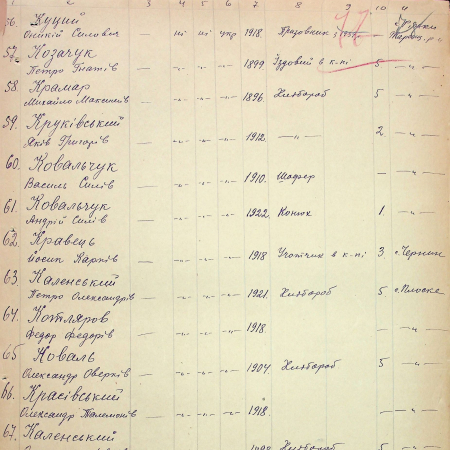 1 2 3 4 5 6 7 8 9 10 11
56. Куций
Онікій Силович — ні ні укр 1918.
57. Козачук
Петро Гнатів — -"- -"- -"- 1899 Їздовий в к-пі 5 -"-
58 Крамар
Михайло Максимів — -"- -"- -"- 1896. Хлібороб 5 -"-
59. Круківський
Яків Григорів — -"- -"- -"- 1912. -"- 2 -"-
60. Ковальчук
Василь Силів — -"- -"- -"- 1910. Шофер — -"-
61. Ковальчук
Андрій Силів — -"- -"- -"- 1922. Конюх 1. -"-
62. Кравець
Йосип Карпів — -"- -"- -"- 1918 Учотчик в к-пі 3 с. Чернин
63. Каленський
Петро Олександрів — -"- -"- -"- 1921. Хлібороб 5 с. Плоске
64. Котляров
Федор Федорів — -"- -"- -"- 1918. — -"-
65 Коваль
Олександр Оверків — -"- -"- -"- 1904 Хлібороб 5 -"-
66. Красівський
Олександр Пилимонів — -"- -"- -"- 1918. — -"-
67. Каленський
Хлібороб 5